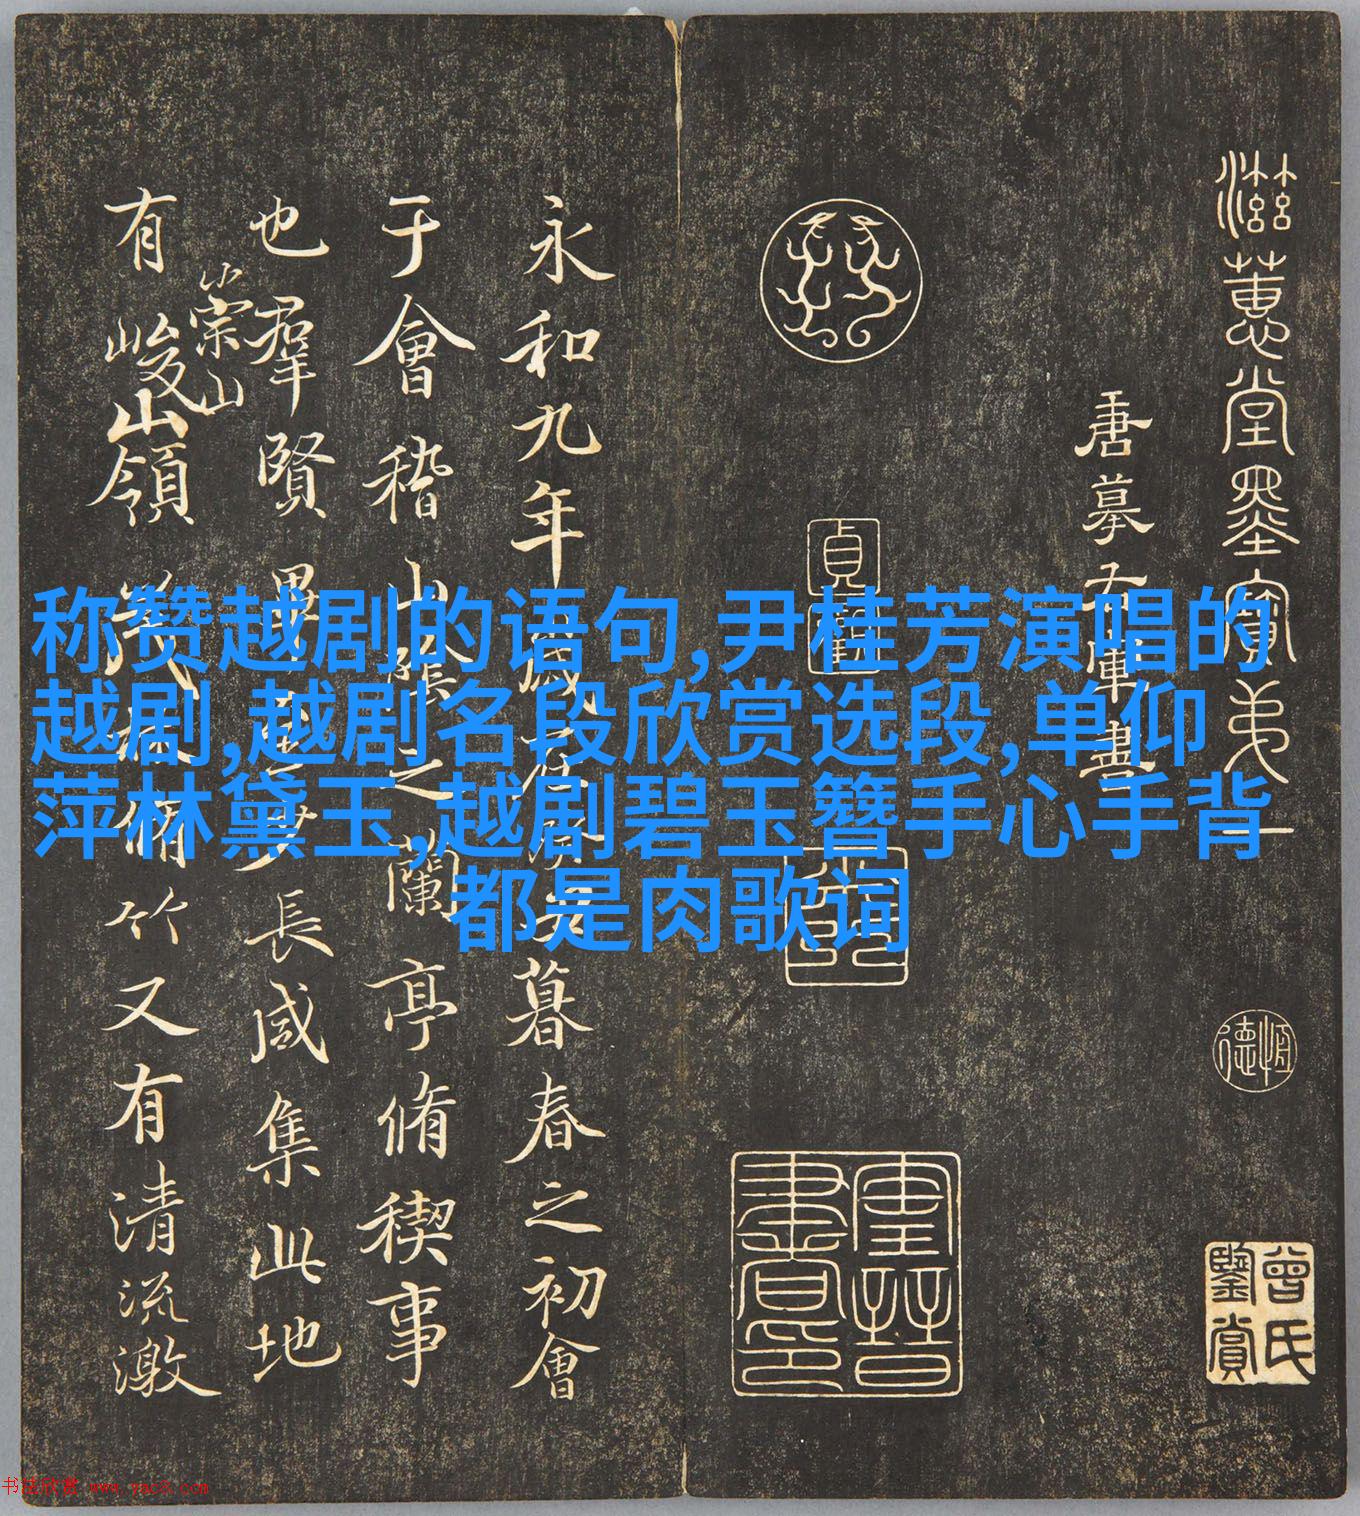 滋蕙堂墨寶弟一
唐摹右軍書
貞觀
恆德
曾氏鑒賞
永和九年歲在癸丑暮春之初會
于會稽山陰之蘭亭脩稧事
也羣賢畢至少長咸集此地
崇山
有峻嶺茂林脩竹又有清流激
称赞越剧的语句,尹桂芳演唱的
越剧,越剧名段欣赏选段,单仰
萍林黛玉,越剧碧玉簪手心手背
都是肉歌词
书法欣赏 www.yac8.com